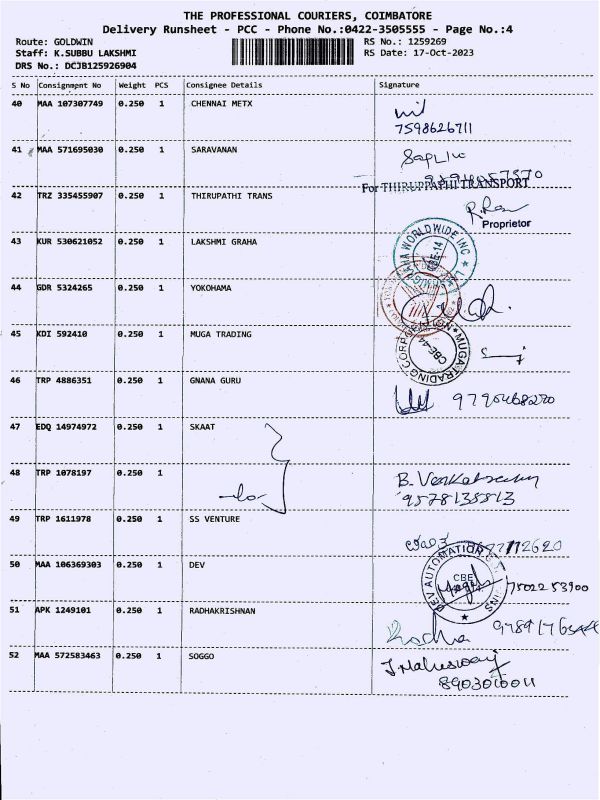 THE PROFESSIONAL COURIERS, COIMBATORE
Delivery Runsheet - PCC - Phone No.:0422-3505555 - Page No.:4
Route: GOLDWIN RS No.: 1259269
Staff: K.SUBBU LAKSHMI RS Date: 17-Oct-2023
DRS No.: DCJB125926904
S No Consignment No Weight PCS Consignee Details Signature
40 MAA 107307749 0.250 1 CHENNAI METX
7598626711
41 MAA 571695030 0.250 1 SARAVANAN
For THIRUPPATHI TRANSPORT
42 TRZ 335455907 0.250 1 THIRUPATHI TRANS
Proprietor
43 KUR 530621052 0.250 1 LAKSHMI GRAHA
WORLDWIDE INC
CBE-14
44 GDR 5324265 0.250 1 YOKOHAMA
45 KDI 592410 0.250 1 MUGA TRADING
MUGA TRADING CORPORATION
CBE-44
46 TRP 4886351 0.250 1 GNANA GURU
47 EDQ 14974972 0.250 1 SKAAT
48 TRP 1078197 0.250 1
-do-
9578135813
49 TRP 1611978 0.250 1 SS VENTURE
50 MAA 106369303 0.250 1 DEV
DEV AUTOMATION
CBE
7502253900
51 APK 1249101 0.250 1 RADHAKRISHNAN
Radha
52 MAA 572583463 0.250 1 SOGGO
J. Maheswari
8903010011